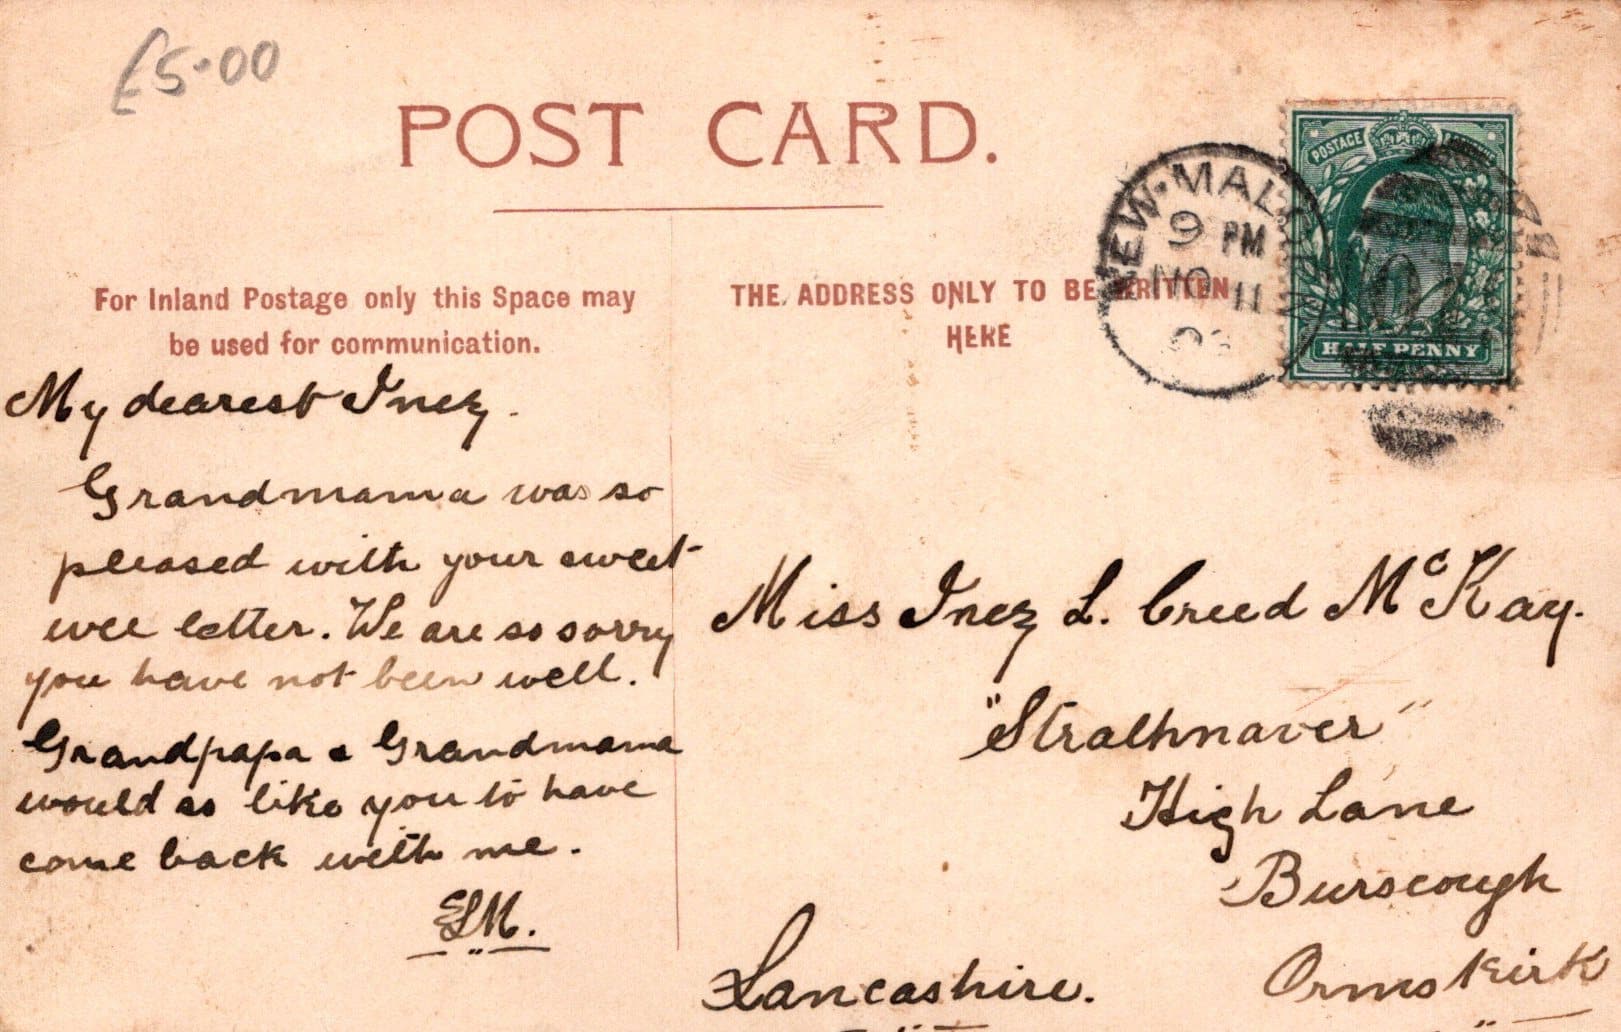 £5.00
POST CARD.
POSTAGE
NEW MALDEN
9 PM
NO 11
HALF PENNY
For Inland Postage only this Space may
be used for communication.
THE ADDRESS ONLY TO BE WRITTEN
HERE
My dearest Inez.
Grandmama was so
pleased with your sweet
wee letter. We are so sorry
you have not been well.
Grandpapa & Grandmama
would so like you to have
come back with me.
ELM.
Miss Inez L. Creed McKay.
"Strathnaver"
High Lane
Burscough
Ormskirk
Lancashire.